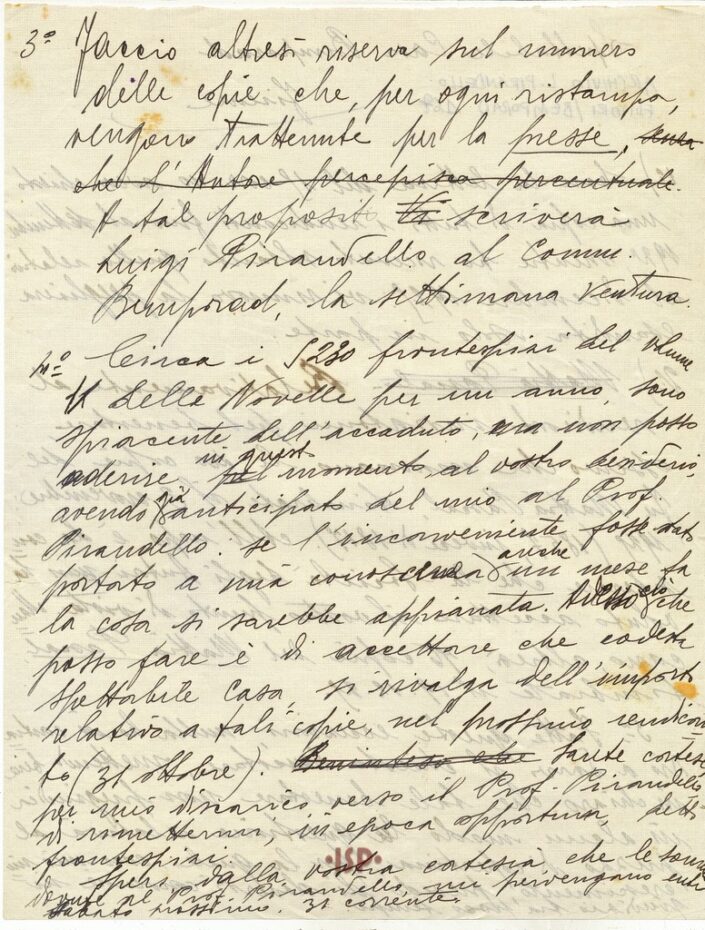 3º Faccio altresì riserva sul numero
delle copie che, per ogni ristampa,
vengono trattenute per la presse, senza
che l'Autore percepisca percentuale.
A tal proposito Vi scriverà
Luigi Pirandello al Comm.
Bemporad, la settimana ventura.
4º Circa i 5230 frontespizi del volume
II delle Novelle per un anno, sono
spiacente dell'accaduto, ma non posso
aderire, in questo momento, al vostro desiderio,
avendo già anticipato del mio al Prof.
Pirandello: se l'inconveniente fosse stato
portato a mia conoscenza anche un mese fa
la cosa si sarebbe appianata. Adesso ciò che
posso fare è di accettare che codesta
Spettabile Casa, si rivalga dell'importo
relativo a tali copie, nel prossimo rendicon-
to (31 ottobre). Beninteso che Siate cortesi
per mio discarico verso il Prof. Pirandello
di rimettermi, in epoca opportuna, detti
frontespizi.
Spero dalla vostra cortesia che le somme
dovute al Prof. Pirandello, mi pervengano entro
sabato prossimo. 31 corrente.
ISP